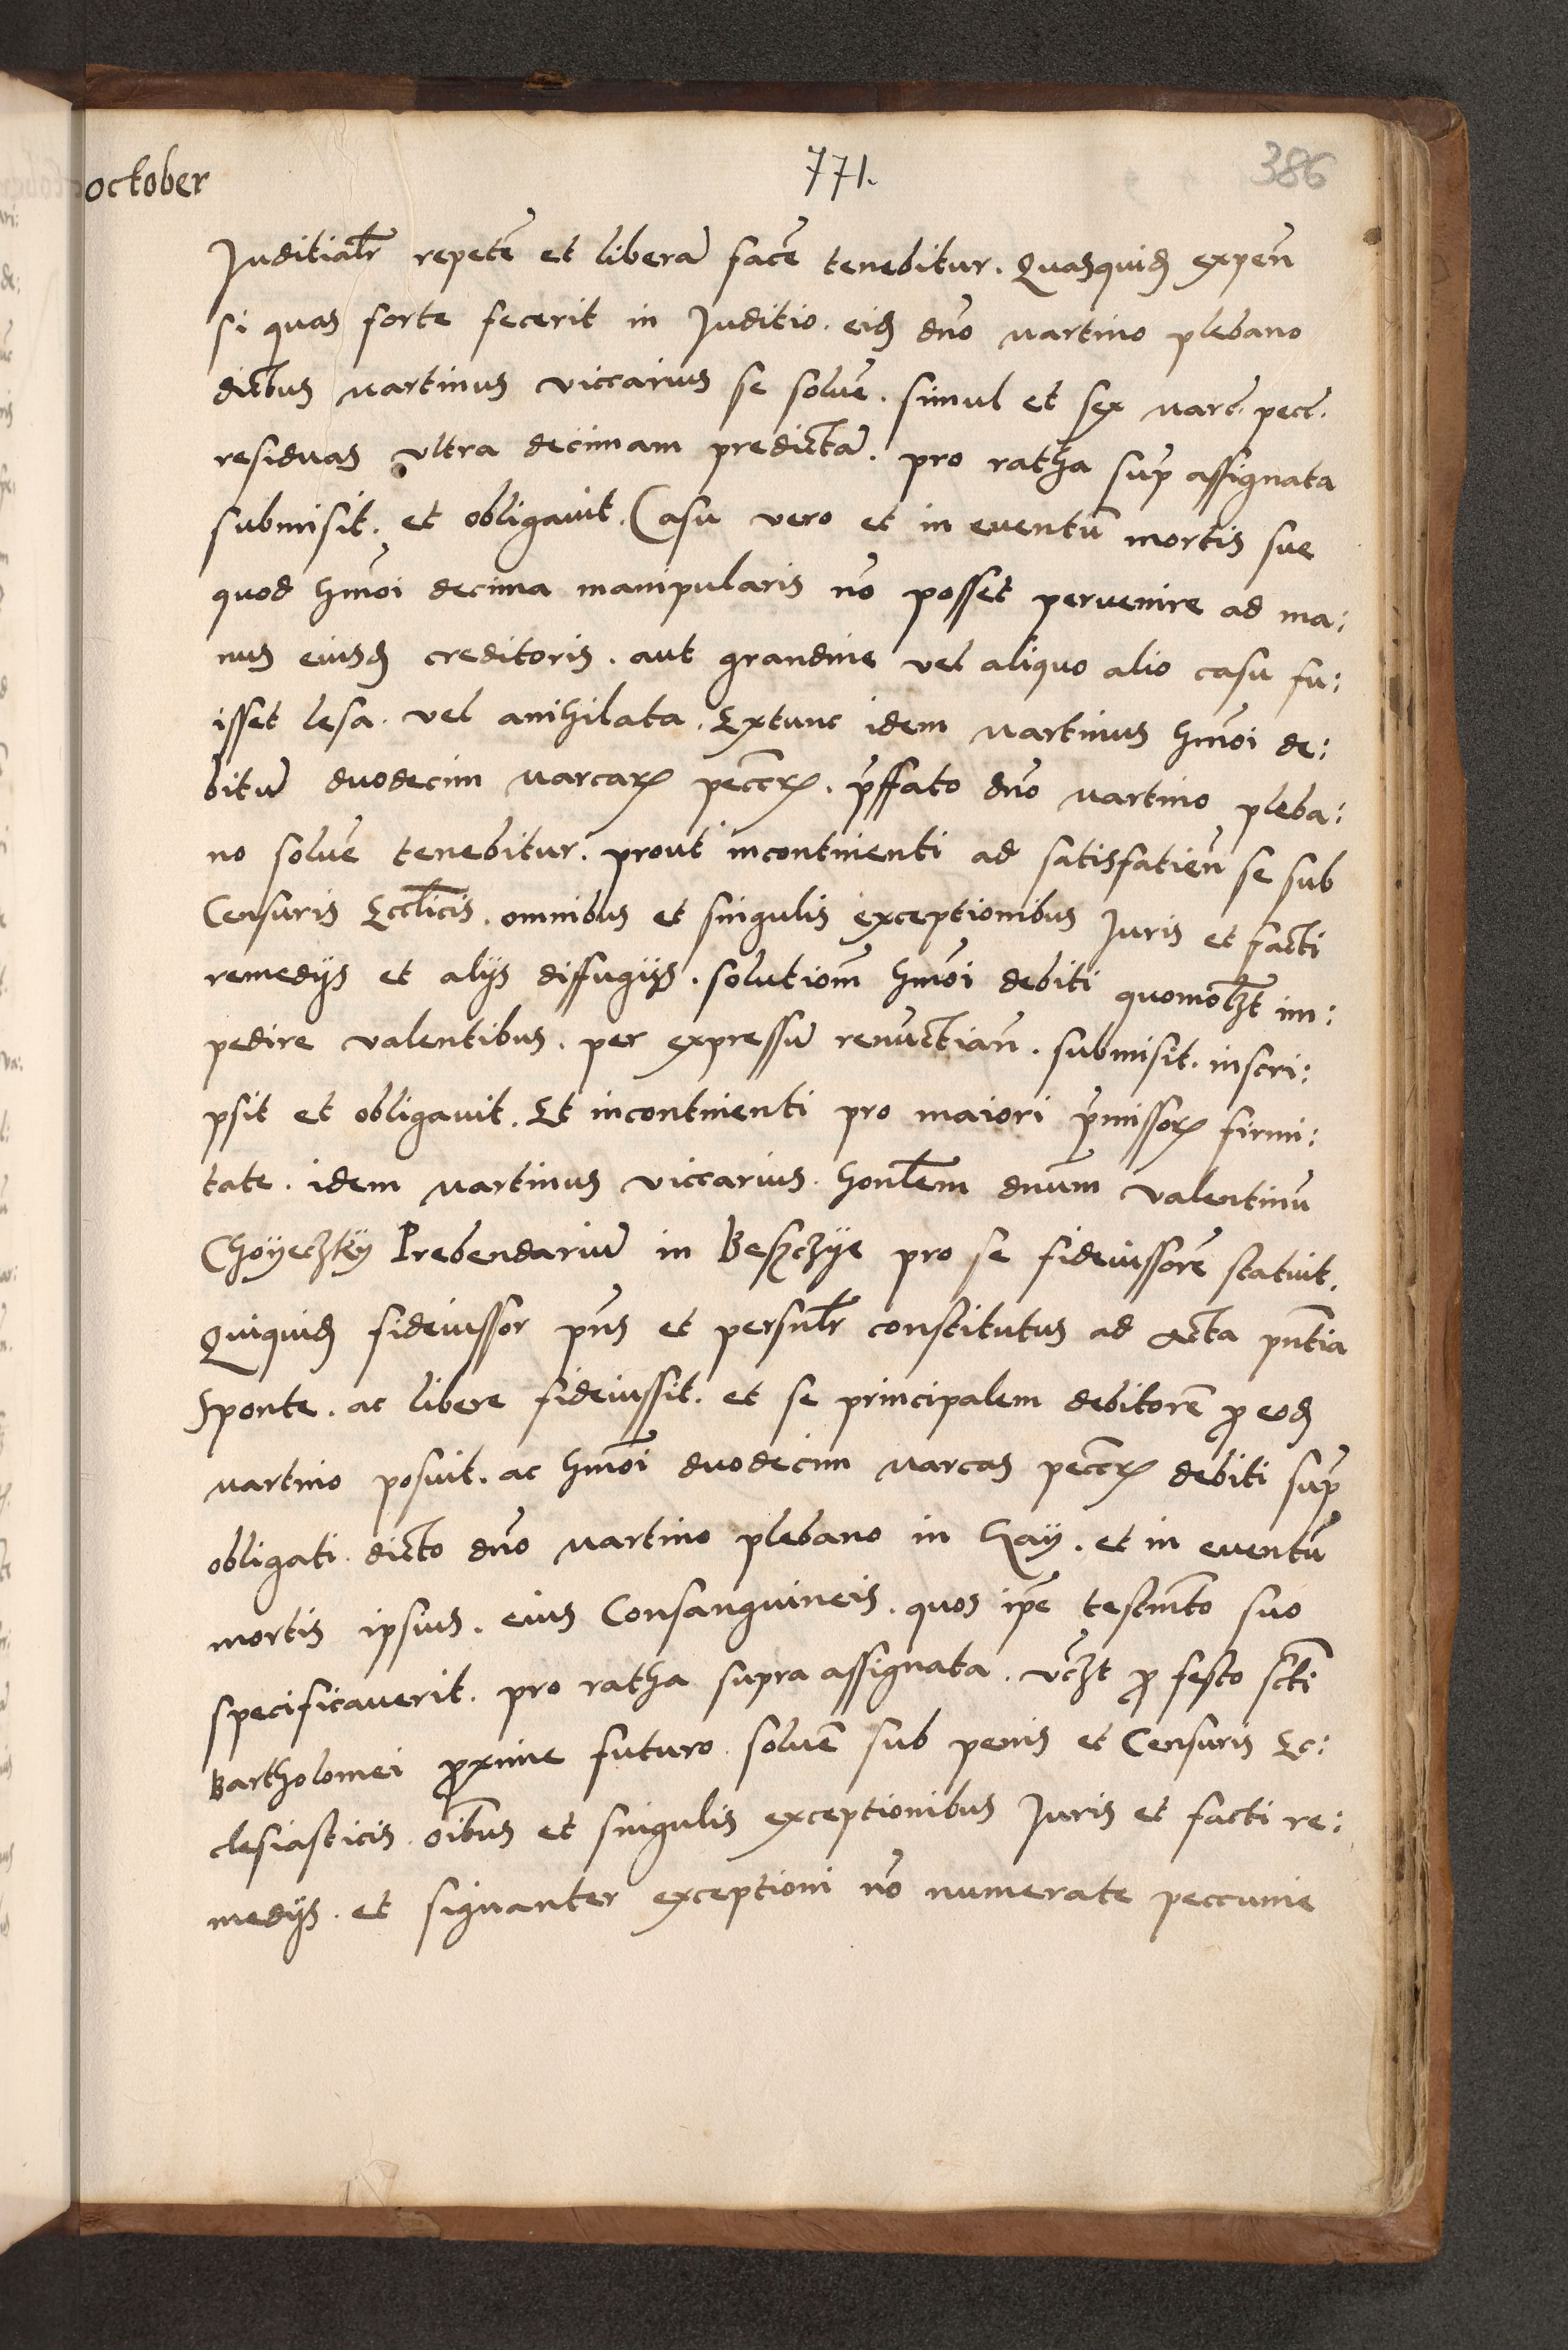 october
771.
386
Juditialr̄ repetē et liberā facē tenebitur. Quasquid expeñ
si quas forte fecerit in Juditio. eid dño martino plebano
dictus martinus viccarius se solvē. simul et sex marc. pecc.
residuas ultra decimam predictā. pro ratha sup̄ assignata
submisit. et obligavit. Casu vero et in eventū mortis sue
quod hmōi decima manipularis nō posset pervenire ad ma:
nus eiusd creditoris. aut grandine vel aliquo alio casu fu:
isset lesa. vel anihilata. Extunc idem martinus hmōi de:
bitū duodecim marcaꝝ peccꝝ. p̄ffato dño martino pleba:
no solvē tenebitur. prout incontinenti ad satisfatieñ se sub
Censuris Eccl̄icis. omnibus et singulis exceptionibus Juris et facti
remedijs et alijs diffugijs. solutiom̄ hmōi debiti quomol̄zt im:
pedire valentibus. per expressū renuctiañ. submisit. inscri:
psit et obligavit. Et incontinenti pro maiori p̄missoꝝ firmi:
tate. idem martinus viccarius. honl̄em dnūm valentinū
Choÿeczkÿ Prebendariū in Besczÿe pro se fideiussorē statuit.
Quiquid fideiussor pñs et persnl̄r constitutus ad acta pñtia
Sponte. ac libere fideiussit. et se principalem debitorē ꝓ eod
martino posuit. ac hmōi duodecim marcas peccꝝ debiti sup̄
obligati. dicto dño martino plebano in Kay. et in eventū
mortis ipsius. eius Consanguineis. quos ip̄e testm̄to suo
specificaverit. pro ratha supra assignata. vc̄zt ꝓ festo scti
Bartholomei ꝓxime futuro. solvē sub penis et Censuris Ec:
clesiasticis. oībus et singulis exceptionibus Juris et facti re:
medijs. et signanter exceptioni nō numerate peccunie